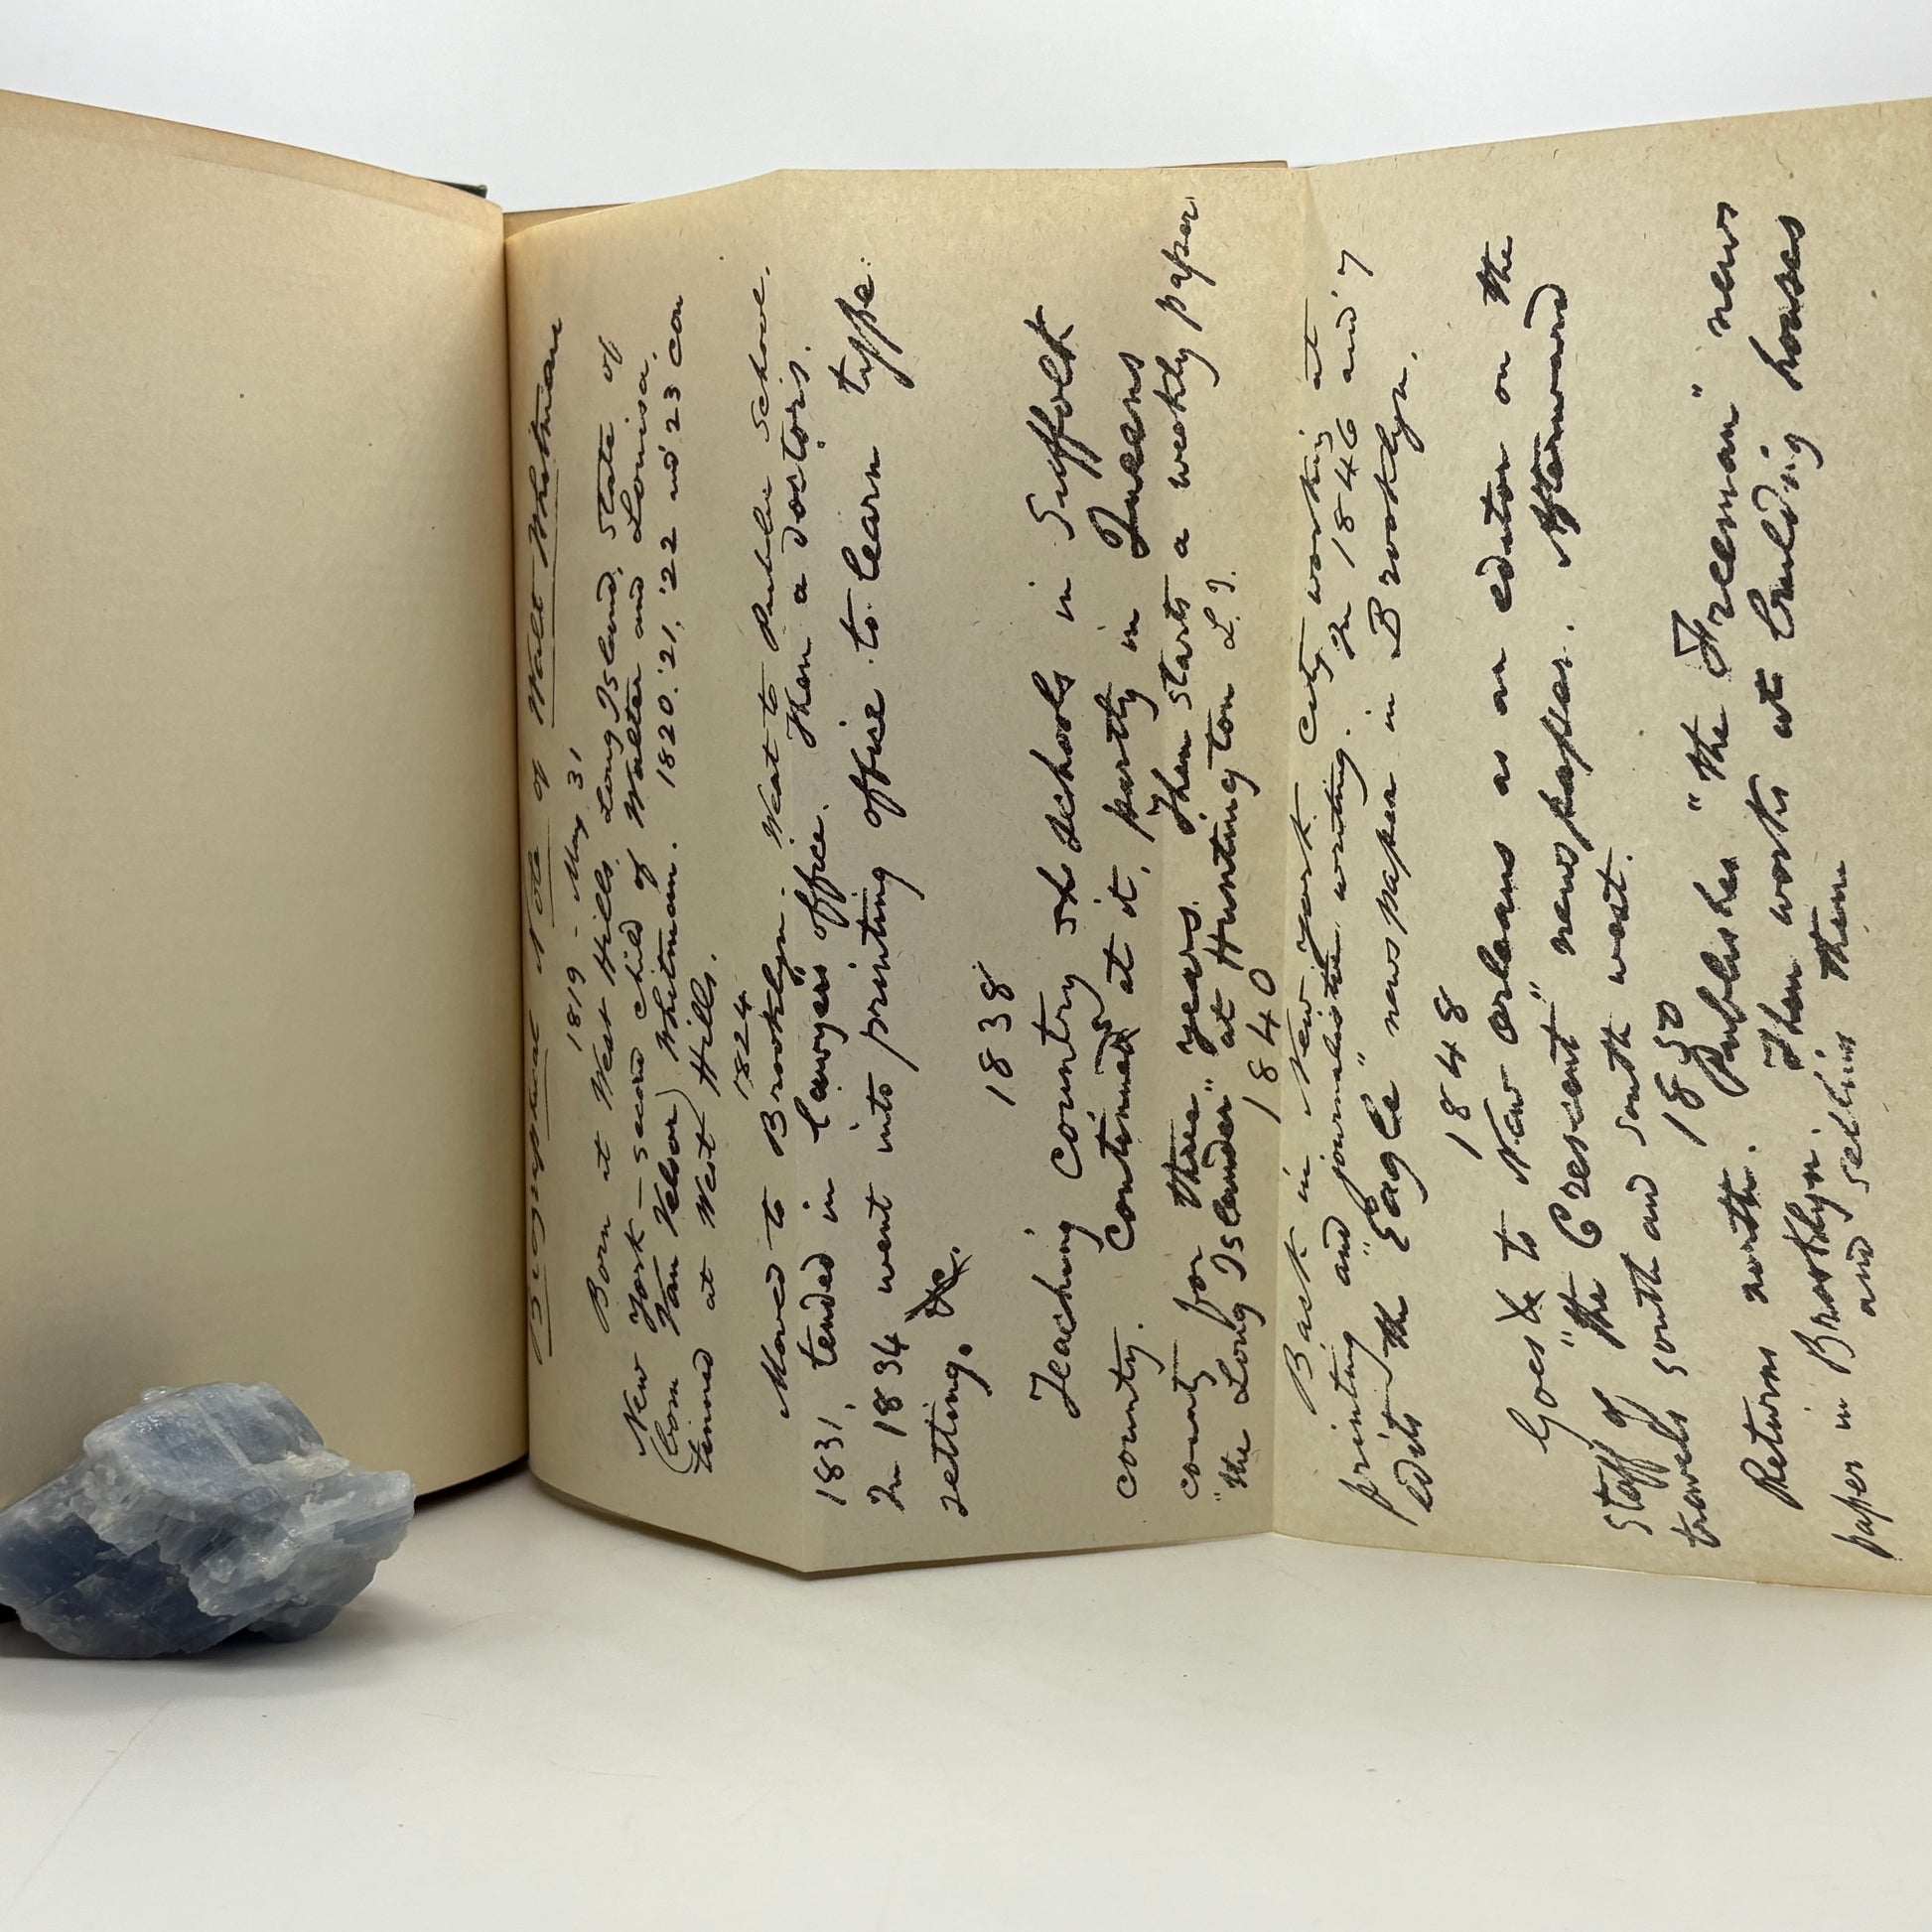 Biographical Note of Walt Whitman
1819 - May 31
Born at West Hills, Long Island, State of
New York - second child of Walter and Louisa.
(born Van Velsor) Whitman. 1820. '21, '22 and '23 con
tinued at West Hills.
1824
Moved to Brooklyn. Went to public school.
1831, tended in lawyer's office. Then a doctor's.
In 1834 went into printing office to learn type:
setting.
1838
Teaching country schools in Suffolk
county. Continued at it, partly in Queens
county for three years. Then starts a weekly paper
"the Long Islander" at Huntington L.I.
1840
Back in New York city working at
printing and journalistic writing. In 1846 and '7
edits the "Eagle" newspaper in Brooklyn.
1848
Goes to New Orleans as an editor on the
staff of "the Crescent" newspaper. Afterward
travels south and south west.
1850
Returns north. Publishes "the Freeman" news
paper in Brooklyn. Then works at building houses
and selling them